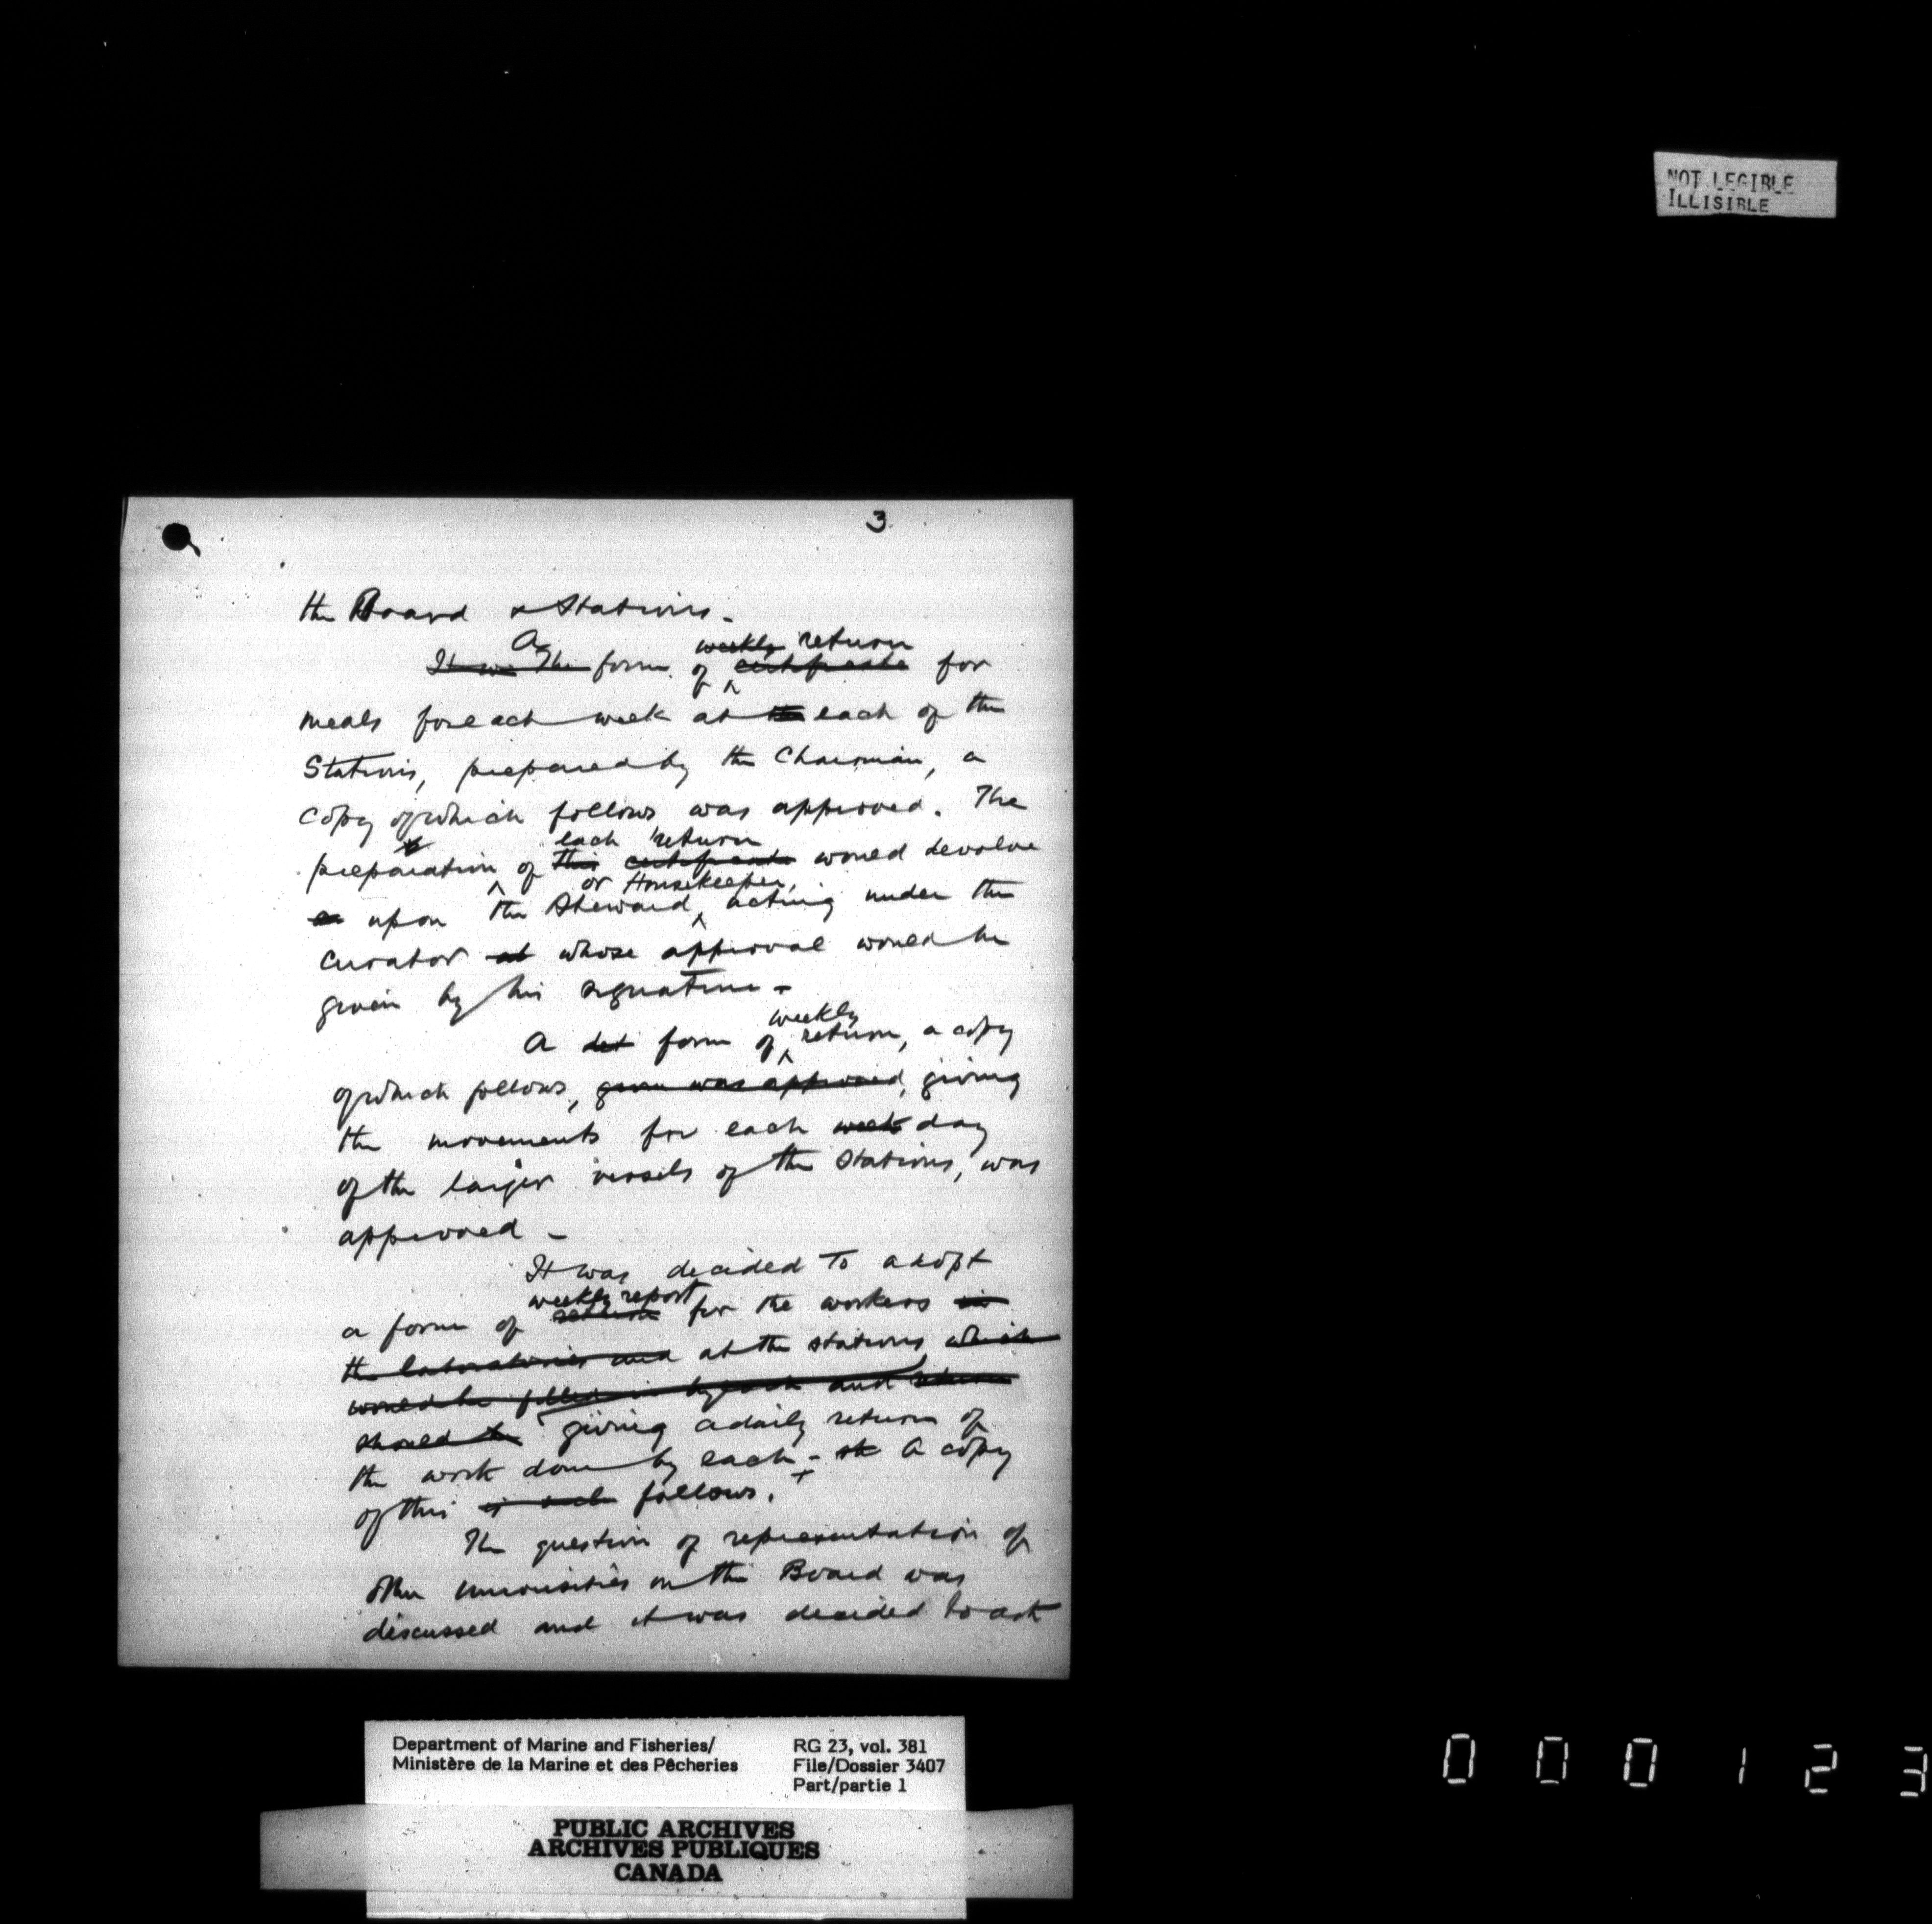 NOT LEGIBLE
ILLISIBLE
3
the Board & Stations.
A weekly return
It w The form of certificate for
meals for each week at the each of the
Stations, prepared by the Chairman, a
copy of which follows was approved. The
each return
preparation of this certificate would devolve
or Housekeeper,
upon the Steward, acting under the
Curator at whose approval would be
given by his signature -
weekly
A det form of return, a copy
of which follows, given was approved, giving
the movements for each week day
of the larger vessels of the Stations, was
approved -
It was decided to adopt
weekly report
a form of return for the workers in
the laboratories and at the stations which
would be filled in by each and
should be giving a daily return of
the work done by each - A copy
of this follows.
The question of representation of
other universities on the Board was
discussed and it was decided to ask
Department of Marine and Fisheries/
Ministère de la Marine et des Pêcheries
RG 23, vol. 381
File/Dossier 3407
Part/partie 1
PUBLIC ARCHIVES
ARCHIVES PUBLIQUES
CANADA
000123